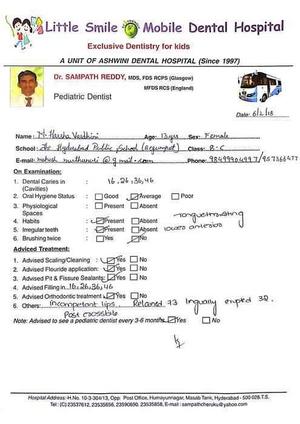 Little Smile Mobile Dental Hospital
Exclusive Dentistry for kids
A UNIT OF ASHWINI DENTAL HOSPITAL (Since 1997)
Dr. SAMPATH REDDY, MDS, FDS RCPS (Glasgow)
MFDS RCS (England)
Pediatric Dentist
Date: 6/2/18
Name: M. Harsha Vardhini Age: 13yrs Sex: Female
School: The Hyderabad Public School (Begumpet) Class: 8-C
E-mail: @gmail.com Phone:
On Examination:
1. Dental Caries in (Cavities) : 16, 26, 36, 46
2. Oral Hygiene Status : Good Average Poor
3. Physiological Spaces : Present Absent
4. Habits : Present Absent Tonguethrusting
5. Irregular teeth : Present Absent lower anteriors
6. Brushing twice : Yes No
Advised Treatment:
1. Advised Scaling/Cleaning : Yes No
2. Advised Flouride application: Yes No
3. Advised Pit & Fissure Sealants: Yes No
4. Advised Filling in 16, 26, 36, 46
5. Advised Orthodontic treatment: Yes No
6. Others: Incompetent lips. Retained 73 lingually erupted 32.
Note: Advised to see a pediatric dentist every 3-6 months Yes No
Hospital Address: H.No. 10-3-304/13, Opp. Post Office, Humayunnagar, Masab Tank, Hyderabad - 500 028. T.S.
Tel: (C) 23537612, 23535656, 23590650, 23535858, E-mail : sampathcheruku@yahoo.com